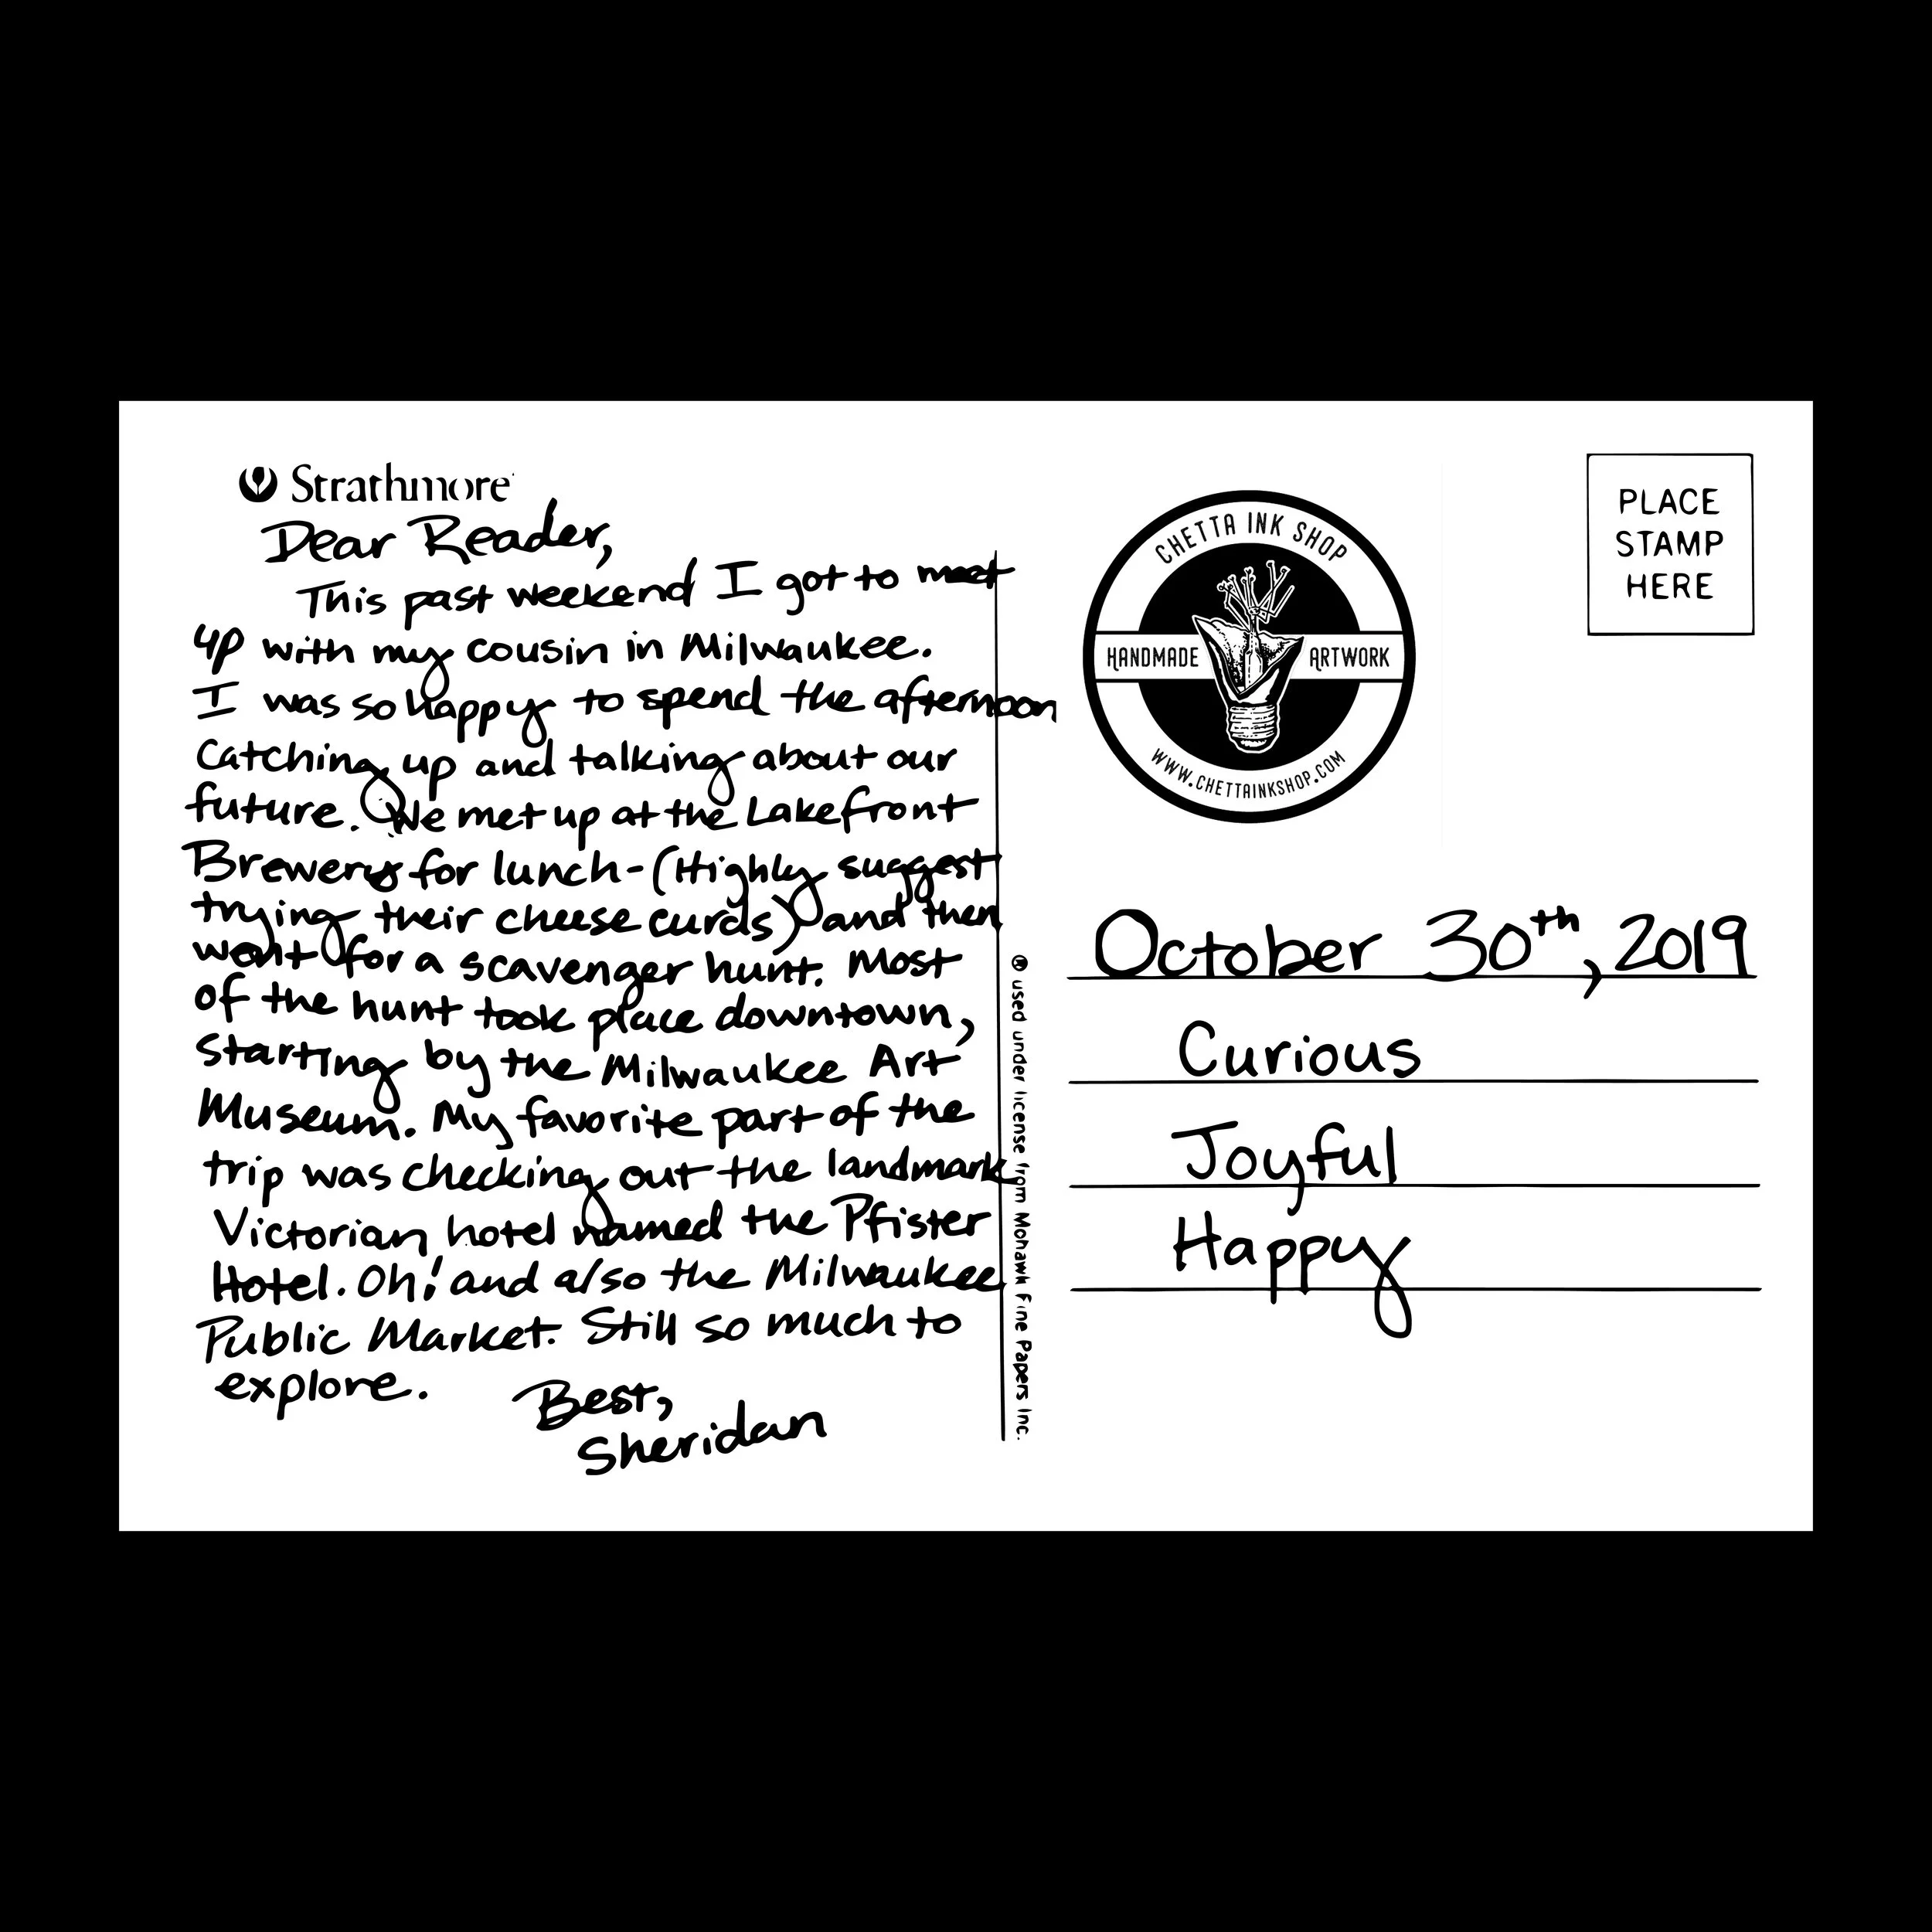 Strathmore
Dear Reader,
This past weekend I got to met
up with my cousin in Milwaukee.
I was so happy to spend the afternoon
Catching up and talking about our
future. We met up at the Lakefront
Brewery for lunch-(Highly suggest
trying their cheese curds) and then
went for a scavenger hunt. Most
of the hunt took place downtown,
Starting by the Milwaukee Art
Museum. My favorite part of the
trip was checking out the landmark
Victorian hotel named the Pfister
Hotel. Oh! and also the Milwaukee
Public Market. Still so much to
explore.
Best,
Sheridan
® used under license from Mohawk Fine Papers Inc.
CHETTA INK SHOP
HANDMADE ARTWORK
WWW.CHETTAINKSHOP.COM
PLACE
STAMP
HERE
October 30th, 2019
Curious
Joyful
Happy